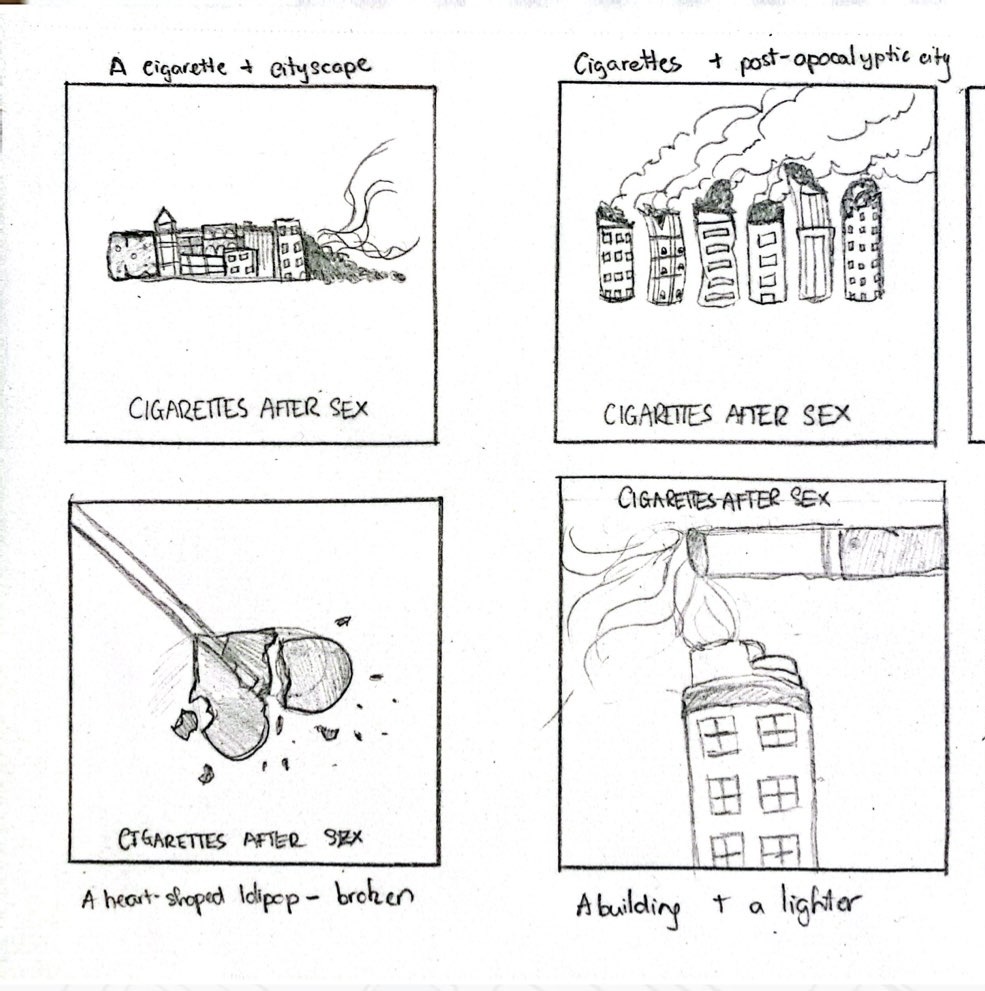 A cigarette + cityscape
Cigarettes + post-apocalyptic city
CIGARETTES AFTER SEX
CIGARETTES AFTER SEX
CIGARETTES AFTER SEX
CIGARETTES AFTER SEX
A heart-shaped lolipop - broken
A building + a lighter